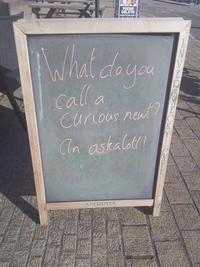 What do you
call a
curious newt?
An askalotl!